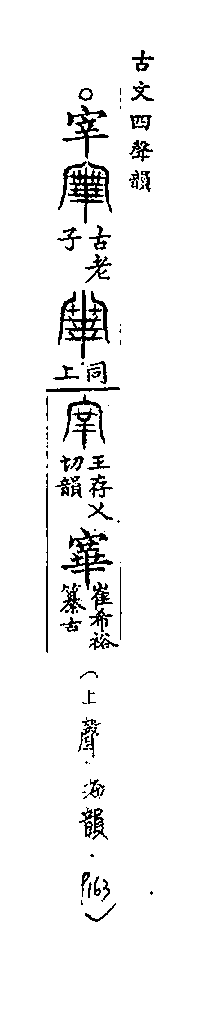 古文四聲韻
宰
古老子
同上
王存乂切韻
崔希裕纂古
(上聲.海韻.P163)